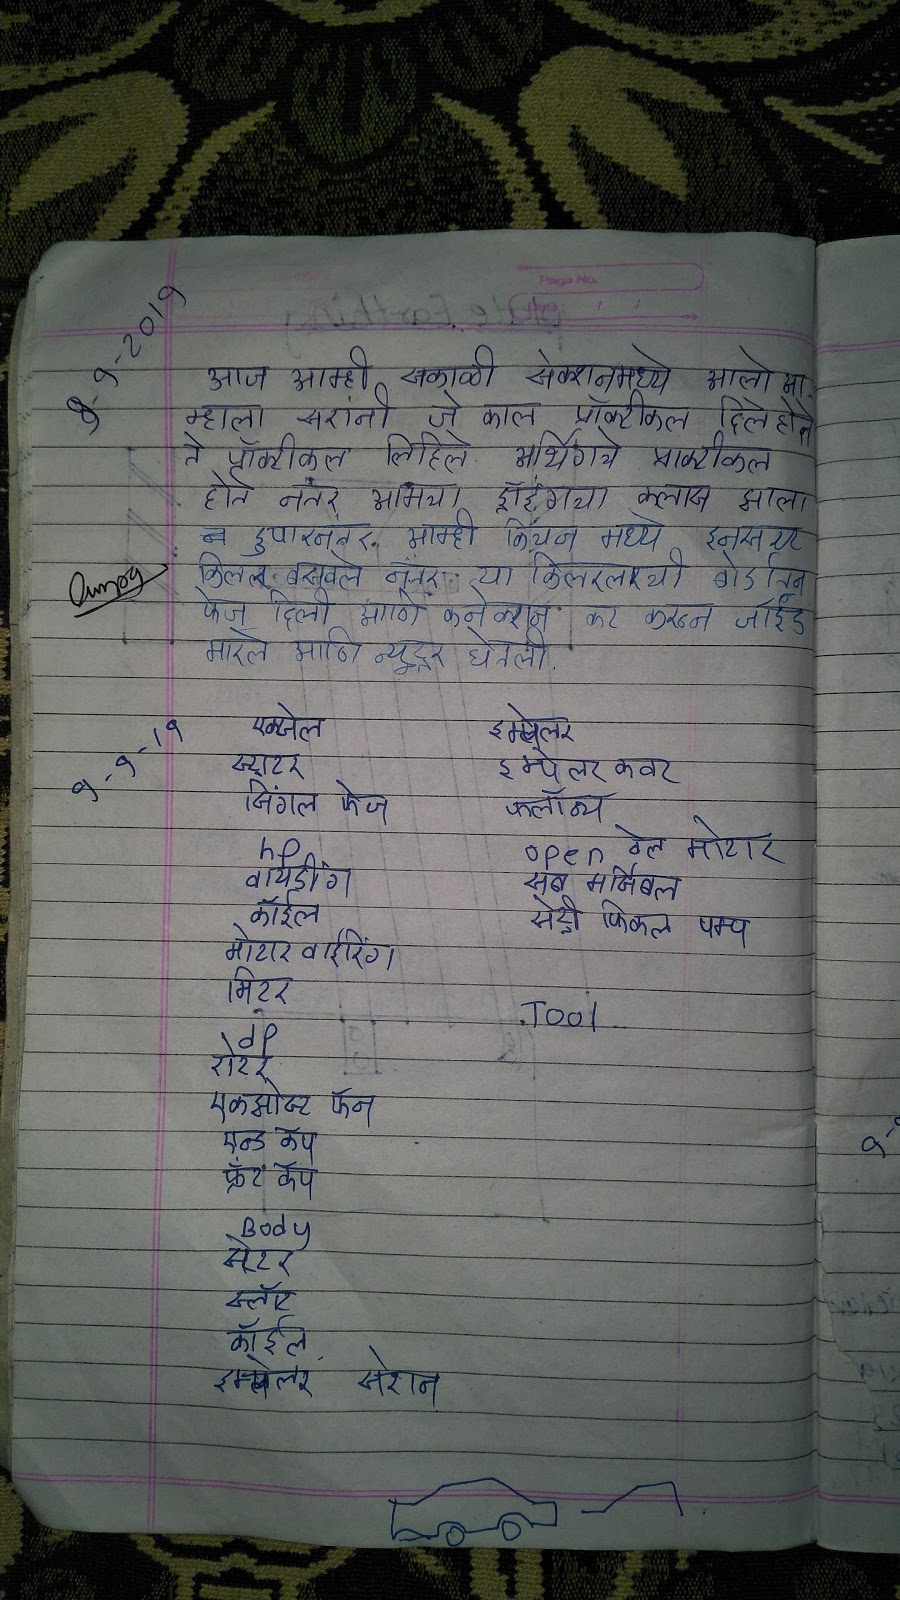 Page No.
8-9-2019
आज आम्ही सकाळी सेक्शनमध्ये आलो आ
म्हाला सरांनी जे काल प्रॅक्टीकल दिले होते
ते प्रॅक्टीकल लिहिले. अर्थिंगचे प्राक्टीकल
होते नंतर आमचा ड्रॉइंगचा क्लास झाला
व दुपारनंतर. आम्ही किचन मध्ये
किलर बसवले नंतर त्या बोर्डातून
फेज दिली आणि कनेक्शन कट करून जॉईंड
मारले आणि न्युट्रर घेतली.
9-9-19
एम्जेल इम्पेलर
स्टाटर इम्पेलर कवर
सिंगल फेज फ्लॉन्च
hp open वेल मोटार
वायडींग सब मर्सिबल
कॉईल सेंट्री फिकल पम्प
मोटार वाईरिंग
मिटर
Tool
dp
रोटर
एकझोस्ट फॅन
एन्ड कॅप
फ्रंट कॅप
Body
सेटर
स्लॉट
कॉईल
इम्पेलर सेशन